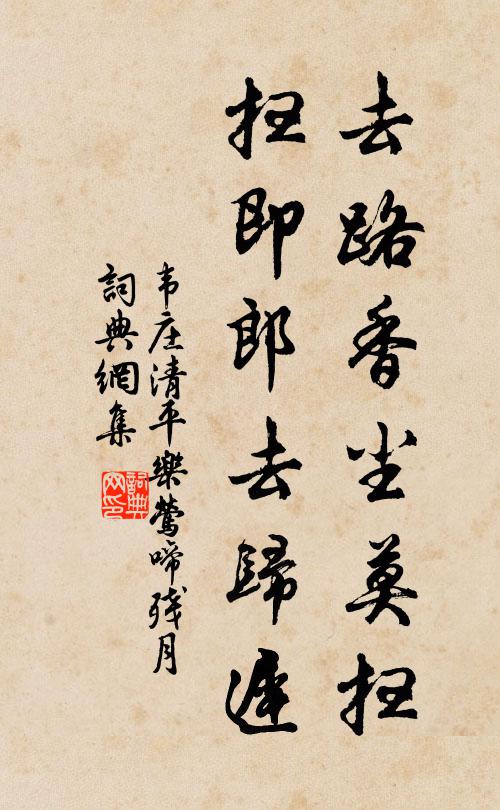 去路香尘莫扫
扫即郎去歸遲
韦庄清平樂鶯啼残月
詞典網集
詞典网印